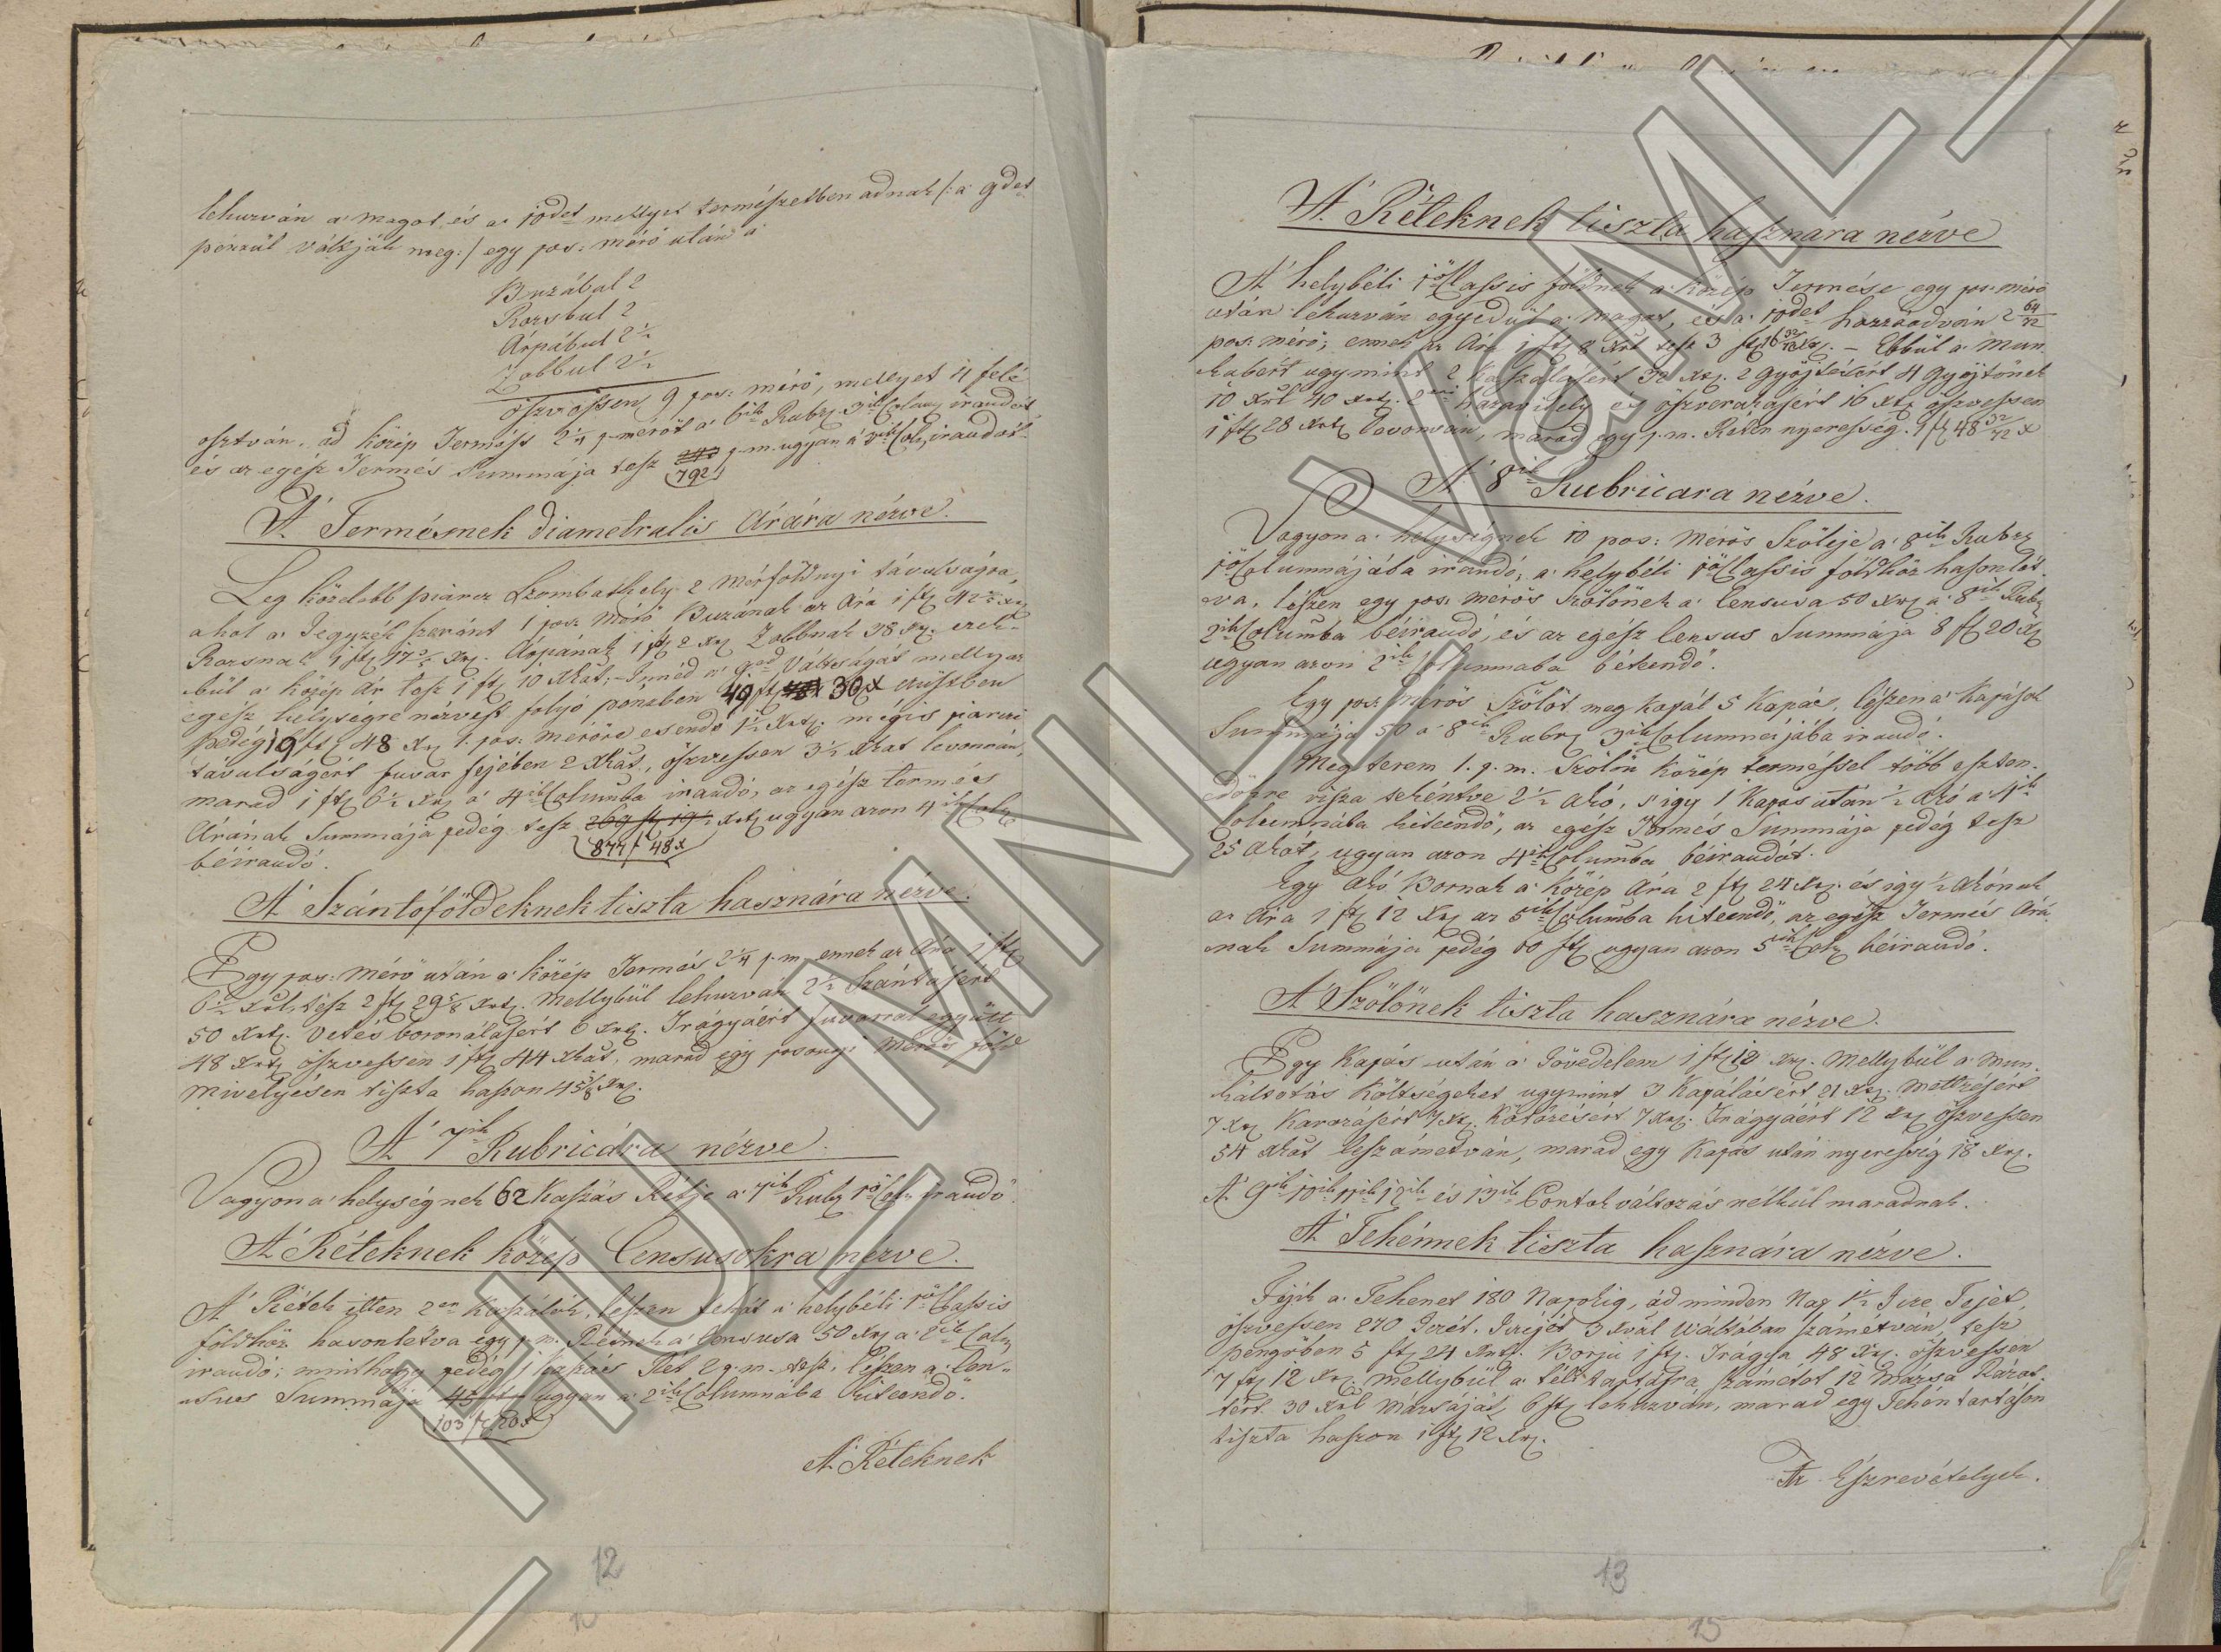 lehuzván a' magot és a' 10det mellyet természetben adnak /: a' 9det
pénzül váltják meg :/ egy pos: mérő után a'
Buzábul 2
Rozsbul 2
Árpábul 2½
Zabbul 2½
öszvössen 9 pos: mérő, mellyet 4 felé
osztván, ád közép Termést 2¼ p. mérőt a' 6ik Rubr. 3ik Colum. irandót
és az egész Termés Summája tesz p. m. ugyan a' 3ik Col. irandót
792
A' Termésnek diametralis Árára nézve.
Leg közelebb piarcz Szombathely 2 mérföldnyi távulságra,
ahol a' Jegyzék szerént 1 pos: mérő Buzának az Ára 1 ft 42 xr
Rozsnak 1 ft 17 xr. Árpának 1 ft 2 xr Zabbnak 38 xr. ezek-
bül a' közép Ár tesz 1 ft 10 xrát; Innéd a' 9ed Váltságát melly az
egész helységre nézvest folyó pénzben 49 ft 30 x ezüstben
pedég 19 ft 48 xr 1. pos: mérőre esendő 1½ xrt. mégis piarczi
távulságért fuvar fejében 2 xrát, öszvessen 3½ xrat levonván,
marad 1 ft 6½ xr a' 4ik Columba irandó, az egész termés
Árának Summája pedég tesz 269 ft 19 xrt ugyan azon 4ik Colu
877 f 48 x
béirandó.
A' Szántóföldeknek tiszta hasznára nézve.
Egy pos: mérő után a' közép Termés 2¼ p. m. ennek az Ára 1 ft
6½ xrál, tész 2 ft 29 5/8 xrt. mellybül lehuzván 2½ Szántásért
50 xrt. Vetés boronálásért 6 xrt. Trágyáért fuvarral együtt
48 xrt öszvessen 1 ft 44 xrát, marad egy posonyi Mérős föld
mivelyésen tiszta haszon 45 5/8 xr.
A' 7ik Rubricára nézve.
Vagyon a' helységnek 62 Kaszás Rétje a' 7ik Rubr 1ső Col. irandó.
A' Réteknek közép Censusokra nézve.
A' Rétek itten 2er Kaszálók, lészen tehát a' helybéli 1ső Classis
földhöz hasonlétva egy p. m. Rétnek a' Censusa 50 xr a' 2ik Colu
irandó; minthogy pedég 1 kaszás Rét 2 p. m. tesz, lészen a' Cen-
sus Summája 45 ugyan a' 2ik Columnába kiteendő.
103 ft 20 x
A' Réteknek
12
A' Réteknek tiszta hasznára nézve
A' helybéli 1ső Classis földnek a' közép Termése egy pos: mérő
után lehuzván egyedül a' magot, és a' 10det hozzáadván 2 64/72
pos: mérő; ennek az Ára 1 ft 8 xrál tesz 3 ft 16 32/72 xr. – Ebbül a' mun-
kabért ugymint 2 kaszálásért 32 xr. 2 gyöjtésért 4 Gyöjtőnek
10 xrál 40 xrt. 2 öszverakásért 16 xr öszvessen
1 ft 28 xrt levonván, marad egy p. m. Réten nyeresség 1 ft 48 32/72 x
A' 8ik Rubricara nézve.
Vagyon a' helységnek 10 pos: Mérős Szöleje a' 8ik Rubr
1ső Columnájába irandó, a' helybéli 1ső Classis földhöz hasonlét-
va, lészen egy pos: mérős Szölőnek a' Censusa 50 xr a' 8ik Rubr
2ik Columba béirandó, és az egész Census Summája 8 ft 20 xr
ugyan azon 2ik Columnaba bétendő.
Egy pos: mérős Szölöt meg kapál 5 Kapás, lészen a' Kapások
Summája 50 a' 8ik Rubr 3ik Columnájába irandó.
Meg terem 1. p. m. Szölön közép terméssel több eszten-
dökre visza tekéntve 2½ akó, s' igy 1 Kapás után ½ akó a' 4ik
Columnába kiteendő, az egész Termés Summája pedég tesz
25 akót, ugyan azon 4ik Columba béirandót.
Egy akó Bornak a' közép Ára 2 ft 24 xr. és igy ½ akónak
az Ára 1 ft 12 xr az 5ik Columba kiteendő, az egész Termés Árá-
nak Summája pedég 60 ft ugyan azon 5ik Colu béirandó.
A' Szölönek tiszta hasznára nézve.
Egy Kapás után a' Jövedelem 1 ft 12 xr. Mellybül a' mun-
káltatás költségeket ugymint 3 Kapálásért 21 xr. Mettzésért
7 xr Karozásért 7 xr. Kötözésért 7 xr. Trágyáért 12 xr öszvessen
54 xrát leszámétván, marad egy Kapás után nyeresség 18 xr.
A' 9ik 10ik 11ik 12ik és 13ik Pontok változás nélkül maradnak.
A' Tehénnek tiszta hasznára nézve.
Fejik a' Tehenet 180 Napokig, ád minden Nap 1½ Icze Tejet,
öszvessen 270 Iczét. Iczéjét 3 xrál Váltóban számétván, tesz
pengőben 5 ft 24 xrt. Borju 1 ft. Trágya 48 xr. öszvessen
7 ft 12 xr. mellybül a' téli tartásra számétot 12 Mázsa Száraz
30 xrál Mázsáját, 6 ft lehuzván, marad egy Tehén tartáson
tiszta haszon 1 ft 12 xr.
Az Észrevételyek.
13
15
HU MNL VaML